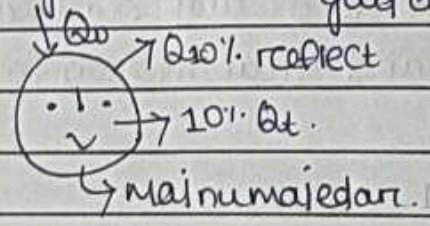 Qo
Q10% reflect
10% Qt.
mainumajedar.